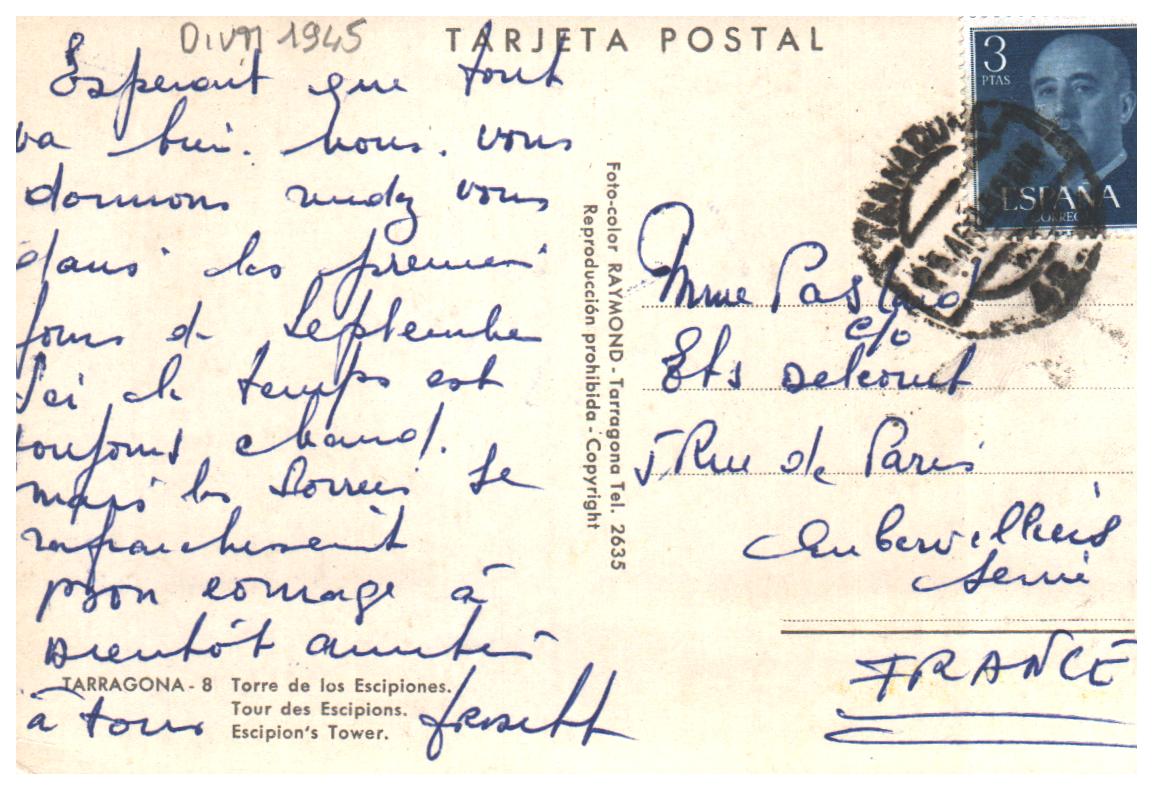 1945
TARJETA POSTAL
Esperant que tout
va bien. nous. vous
donnons rendez vous
dans les premiers
jours de Septembre
Ici le temps est
toujours chaud.
mais les soirées se
rafraichissent
bon courage à
bientôt amitiés
à tous
TARRAGONA - 8 Torre de los Escipiones.
Tour des Escipions.
Escipion's Tower.
Foto-color RAYMOND - Tarragona Tel. 2635
Reproducción prohibida - Copyright
3
PTAS
ESPAÑA
CORREO
Mme
c/o
Ets Delcourt
5 Rue de Paris
Aubervilliers
Seine
FRANCE